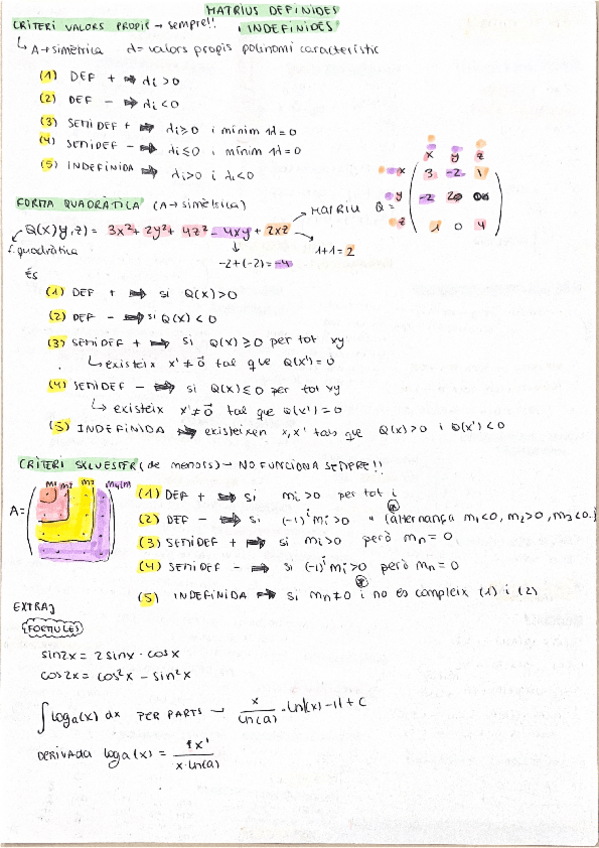 MATRIUS DEFINIDES
I INDEFINIDES
CRITERI VALORS PROPIS → sempre!!
↳ A → simètrica λ = valors propis polinomi característic
(1) DEF + ⇒ λi > 0
(2) DEF - ⇒ λi < 0
(3) SEMIDEF + ⇒ λi ≥ 0 i mínim 1λ = 0
(4) SEMIDEF - ⇒ λi ≤ 0 i mínim 1λ = 0
(5) INDEFINIDA ⇒ λi > 0 i λi < 0
FORMA QUADRÀTICA (A → simètrica)
Q(x,y,z) = 3x² + 2y² + 4z² - 4xy + 2xz
f. quadràtica
-2+(-2) = -4
1+1 = 2
MATRIU Q =
x y z
x 3 -2 1
y -2 2 0
z 1 0 4
És
(1) DEF + ⇒ si Q(x) > 0
(2) DEF - ⇒ si Q(x) < 0
(3) SEMIDEF + ⇒ si Q(x) ≥ 0 per tot xy
↳ existeix x' ≠ 0⃗ tal que Q(x') = 0
(4) SEMIDEF - ⇒ si Q(x) ≤ 0 per tot xy
↳ existeix x' ≠ 0⃗ tal que Q(x') = 0
(5) INDEFINIDA ⇒ existeixen x, x' tals que Q(x) > 0 i Q(x') < 0
CRITERI SILVESTER (de menors) → NO FUNCIONA SEMPRE!!
A =
m1 m2 m3 m4/m
(1) DEF + ⇒ si mi > 0 per tot i
(2) DEF - ⇒ si (-1)ⁱ mi > 0 * (alternança m1<0, m2>0, m3<0..)
(3) SEMIDEF + ⇒ si mi > 0 però mn = 0
(4) SEMIDEF - ⇒ si (-1)ⁱ mi > 0 però mn = 0
(5) INDEFINIDA ⇒ si mn ≠ 0 i no és compleix (1) i (2)
EXTRA}
FORMULES
sin2x = 2 sinx · cosx
cos2x = cos²x - sin²x
∫ loga(x) dx PER PARTS → x/ln(a) · ln|(x)-1| + C
DERIVADA loga(x) = 1x'/x·ln(a)